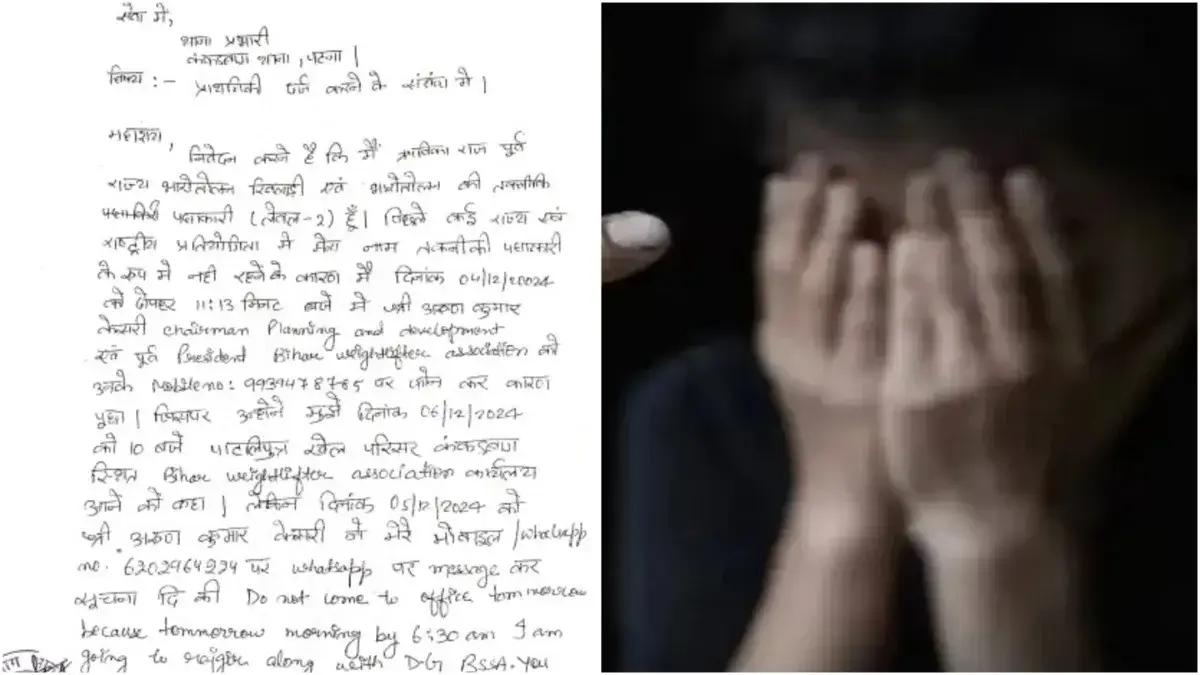 सेवा में,
थाना प्रभारी
कंकड़बाग थाना, पटना |
विषय :- प्राथमिकी दर्ज करने के संबंध में |
महाशय,
निवेदन करने है कि मैं राज पूर्व
राज्य भारोत्तोलन खिलाड़ी एवं भारोत्तोलन की तकनीकि
पदाधिकारी (लेवल-2) हूँ | पिछले कई राज्य एवं
राष्ट्रीय प्रतियोगिता में मेरा नाम तकनीकी पदाधिकारी
के रुप में नही रहने के कारण मैं दिनांक 04/12/2024
को दोपहर 11:13 मिनट बजे में श्री अरुण कुमार
केसरी chairman Planning and development
एवं पूर्व President Bihar weightlifter association को
उनके Mobile no: 9939478765 पर फोन कर कारण
पूछा | जिसपर उन्होंने मुझे दिनांक 06/12/2024
को 10 बजे पाटलिपुत्र खेल परिसर कंकड़बाग
स्थित Bihar weightlifter association कार्यालय
आने को कहा | लेकिन दिनांक 05/12/2024 को
श्री अरुण कुमार केसरी ने मेरे मोबाइल /whatsapp
no. 6202964224 पर whatsapp पर message कर
सूचना दि की Do not come to office tommorow
because tommorow morning by 6:30 am I am
going to rajgir along with DG BSSA. You